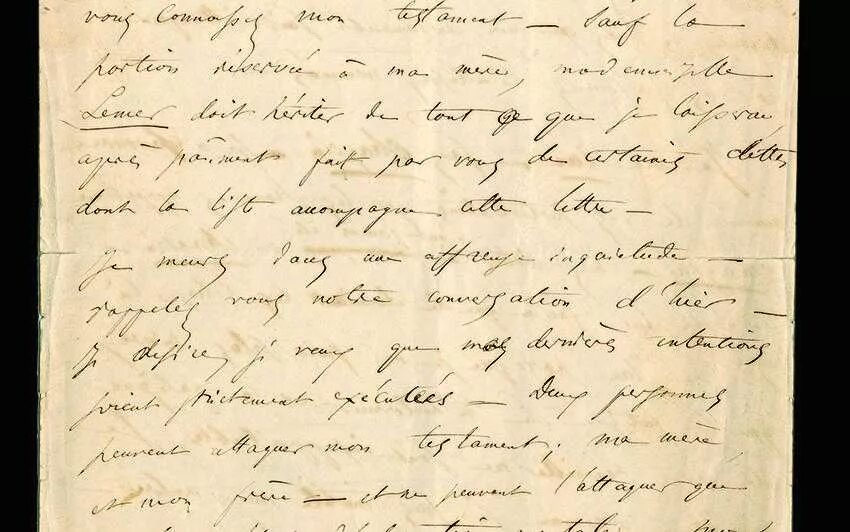 vous connaissez mon testament — Sauf la
portion réservée à ma mère, mademoiselle
Lemer doit hériter de tout ce que je laisserai,
après paiment fait par vous de certaines dettes
dont la liste accompagne cette lettre —
Je meurs dans une affreuse inquiétude —
rappelez vous notre conversation d'hier —
je désire, je veux que mes dernières intentions
soient strictement exécutées — Deux personnes
peuvent attaquer mon testament; ma mère
et mon frère — et ne peuvent l'attaquer que